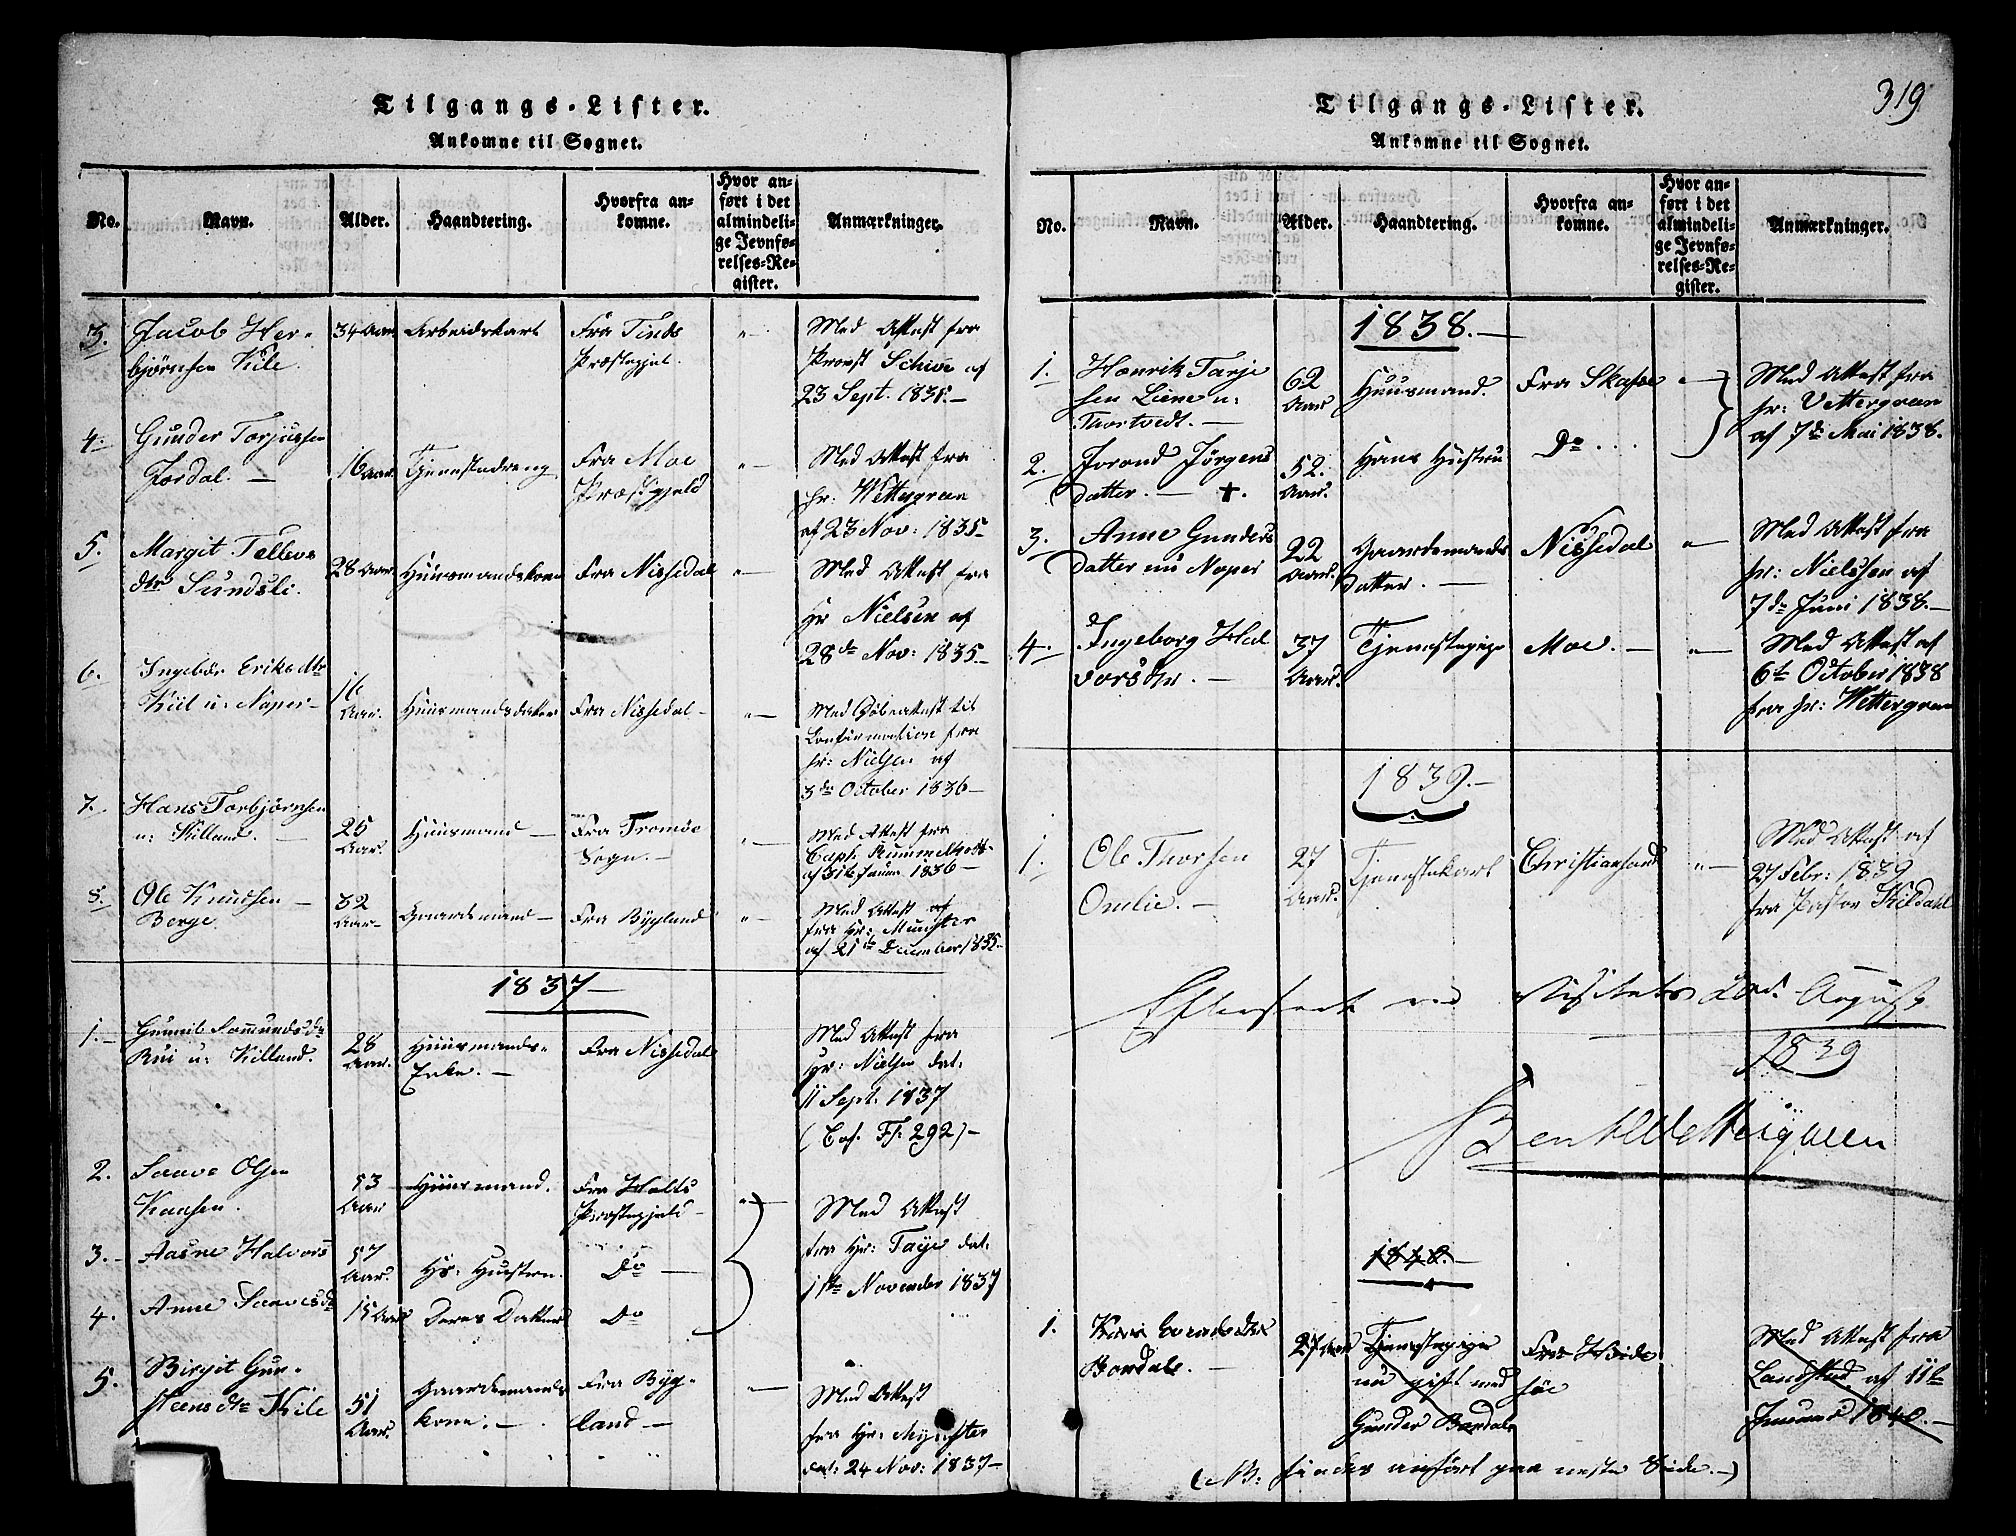 Tilgangs-Lister.
Ankomne til Sognet.
No.
Navn.
Alder.
Haandtering.
Hvorfra an-
komne.
Hvor an-
ført i det
almindeli-
ge Jevnfø-
relses-Re-
gister.
Anmærkninger.
3.
Jacob Her-
bjørnsen Kile.
34 Aar
Arbeidskarl
Fra Tinds
Præstegjel.
Med Attest fra
Provst Schive af
23 Sept. 1835.—
4.
Gunder Torjussen
Jordal. —
16 Aar.
Tjenestedreng
Fra Moe
Præstegjeld
Med Attest fra
hr. Wettergreen
af 23 Nov: 1835—
5.
Margit Tellevs
dtr Sundsli.
28 Aar.
Huusmandskone
Fra Nissedal
Med Attest fra
Hr Nielsen af
28de Nov: 1835.—
6.
Ingebor Eriksdtr
Kiil u: Noper—
16
Aar.
Huusmandsdatter
Fra Nissedal—
Med Døbeattest til
Confirmation fra
hr: Nielsen af
3de October 1836—
7.
Hans Torbjørnsen
u: Killand. —
25
Aar.
Huusmand —
Fra Tromøe
Sogn. —
Med Attest fra
Caph. Rummelhoff
af 31te Januar 1836—
8.
Ole Knudsen —
Berge.
32
Aar—
Gaardemand—
Fra Bygland
Med Attest af
fra Hr: Munster
af 21de December 1835.
1837—
1.—
Gunnil Somundsdr
Rui u: Killand.
28
Aar.
Huusmands-
Enke. —
Fra Nissedal
Med Attest fra
Hr: Nielsen dat.
11 Sept. 1837
(Cof. Fj. 292)—
2.
Saave Olsen
Kaasen.
53
Aar
Huusmand.
Fra Holts
Præstegjeld—
Med Attest
fra Hr: Taye dat.
1ste November 1837
3.—
Aasne Halvors
57
Aar.
Hs: Hustru.
Do —
4.
Anne Saavesdr
15 Aar
Deres Datter
Do
5.
Birgit Gun-
steensdtr Kile
51
Aar.
Gaardemands
kone. —
Fra Byg-
land —
Med Attest
fra Hr: Mynster
dat: 24 Nov: 1837—
319
Tilgangs-Lister.
Ankomne til Sognet.
No.
Navn.
Alder.
Haandtering.
Hvorfra an-
komne.
Hvor an-
ført i det
almindeli-
ge Jevnfø-
relses-Re-
gister.
Anmærkninger.
1838.—
1.
Henrik Tarje
sen Liene u:
Tortvedt. —
62
Aar
Huusmand.
Fra Skafse
Med Attest fra
hr: Vettergreen
af 7de Mai 1838.
2.
Jorond Jørgens
datter. — +.
52.
Aar.
Hans Hustru
Do
3.
Anne Gunders
datter nu Noper
22
Aar.
Gaardemands
datter. —
Nissedal
Med Attest fra
hr: Nielssen af
7de Juni 1838.—
4.
Ingeborg Hal
vorsdtr. —
37
Aar.
Tjenestepige
Moe. —
Med Attest af
6te October 1838
fra hr: Wettergreen
1839.—
1.
Ole Thorsen
Omlie. —
27
Aar.
Tjenestekarl
Christiansand
Med Attest af
27 Febr: 1839
fra Pastor Kildahl
Efterseet ved Visitats 2de August
1839
1840.—
1.
Kari
Bordale. —
27 Aar
Tjenestepige
nu gift med
Gunder Bordale
Fra Hvide
søe
Med Attest fra
Landstad af 11te
Januar 1840.—
(NB: findes anført paa næste Side.—)